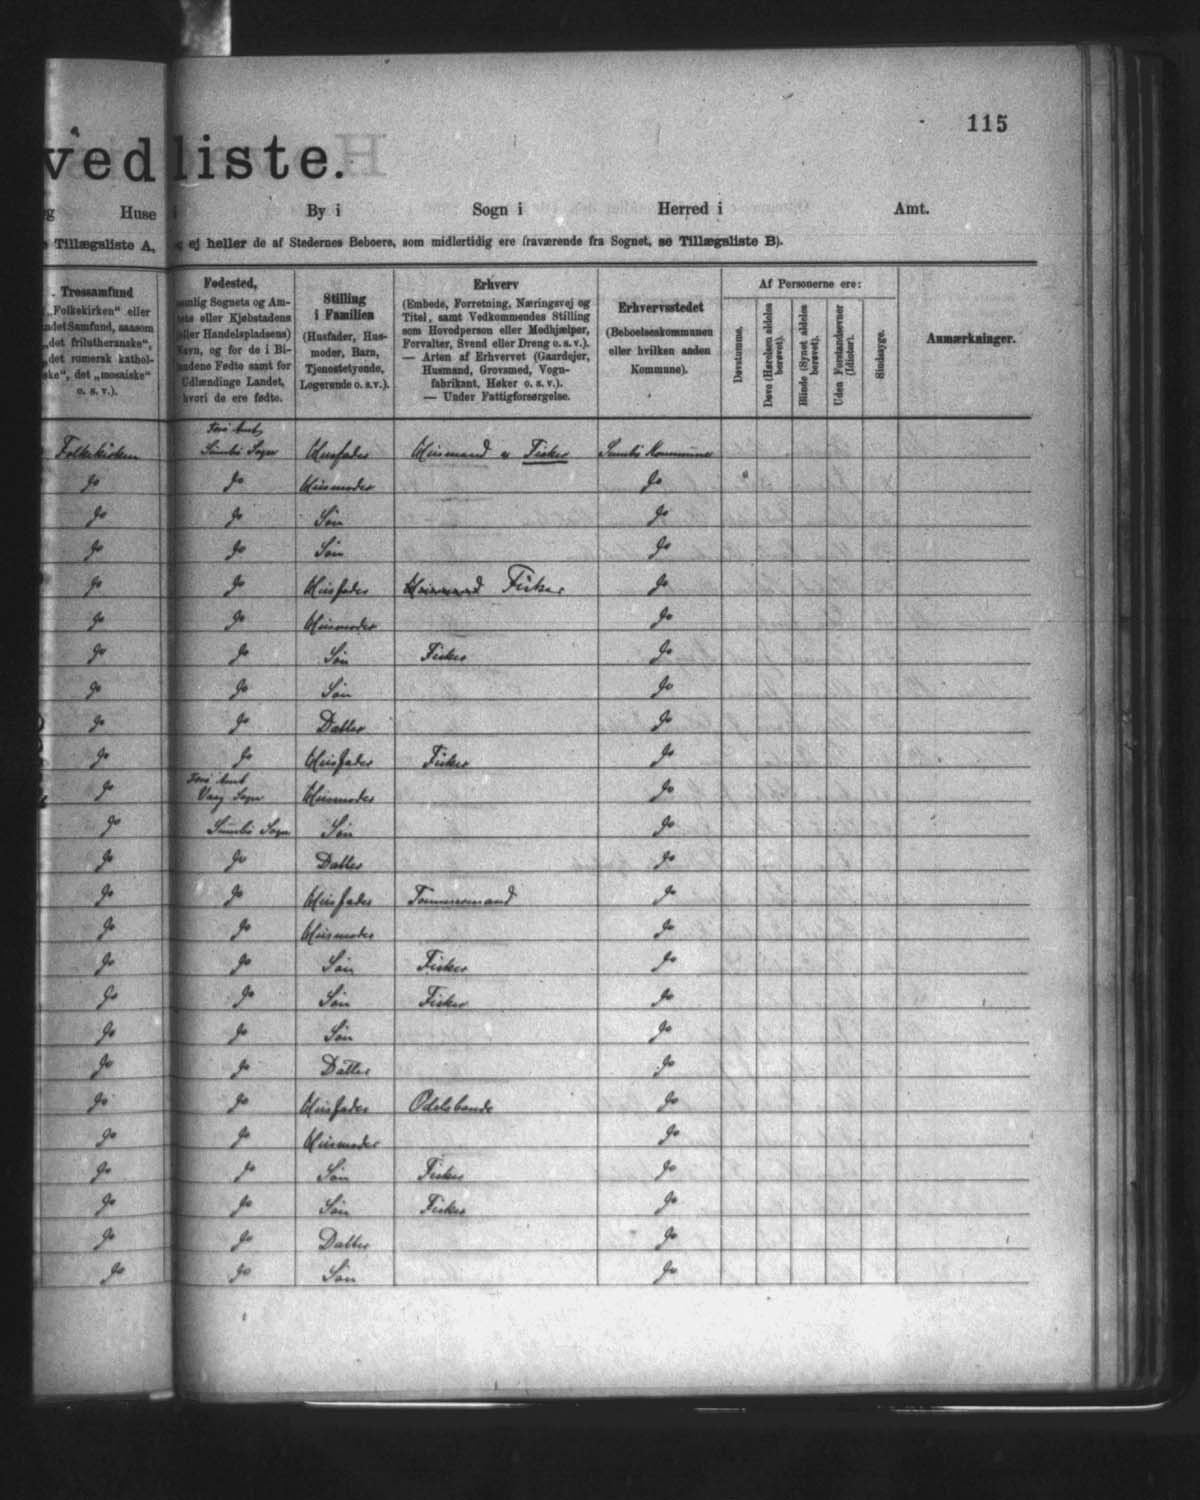 115
vedliste.
Huse i By i Sogn i Herred i Amt.
Tillægsliste A, og ej heller de af Stedernes Beboere, som midlertidig ere fraværende fra Sognet, se Tillægsliste B).
Trossamfund
„Folkekirken“ eller
andet Samfund, saasom
„det frilutheranske“,
„det romersk kathol-
ske“, det „mosaiske“
o. s. v.).
Fødested,
nemlig Sognets og Am-
tets eller Kjøbstadens
eller Handelspladsens)
Navn, og for de i Bi-
landene Fødte samt for
Udlændinge Landet,
hvori de ere fødte.
Stilling
i Familien
(Husfader, Hus-
moder, Barn,
Tjenestetyende,
Logerende o. s. v.).
Erhverv
(Embede, Forretning, Næringsvej og
Titel, samt Vedkommendes Stilling
som Hovedperson eller Medhjælper,
Forvalter, Svend eller Dreng o. s. v.).
— Arten af Erhvervet (Gaardejer,
Husmand, Grovsmed, Vogn-
fabrikant, Høker o. s. v.).
— Under Fattigforsørgelse.
Erhvervsstedet
(Beboelseskommunen
eller hvilken anden
Kommune).
Af Personerne ere:
Døvstumme.
Døve (Hørelsen aldeles
berøvet).
Blinde (Synet aldeles
berøvet).
Uden Forstandsevner
(Idioter).
Sindssyge.
Anmærkninger.
Færø Amt,
Folkekirken Sumbø Sogn Husfader Huusmand & Fisker Sumbø Kommune
do do Husmoder do
do do Søn do
do do Søn do
do do Husfader Huusmand Fisker do
do do Husmoder do
do do Søn Fisker do
do do Søn do
do do Datter do
do do Husfader Fisker do
Færø Amt
do Vaag Sogn Husmoder do
do Sumbø Sogn Søn do
do do Datter do
do do Husfader Tømmermand do
do do Husmoder do
do do Søn Fisker do
do do Søn Fisker do
do do Søn do
do do Datter do
do do Husfader Odelsbonde do
do do Husmoder do
do do Søn Fisker do
do do Søn Fisker do
do do Datter do
do do Søn do